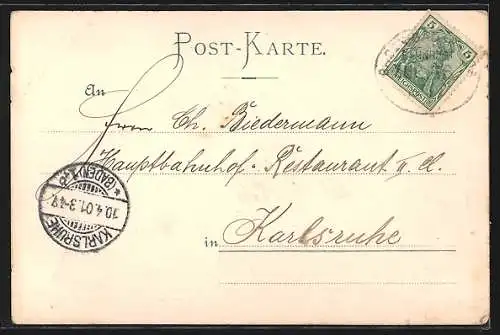 POST-KARTE.
An
Herrn Ch. Biedermann
Hauptbahnhof-Restaurant II. Cl.
in Karlsruhe
KARLSRUHE
10.4.01.3-4
* (BADEN)
5 5